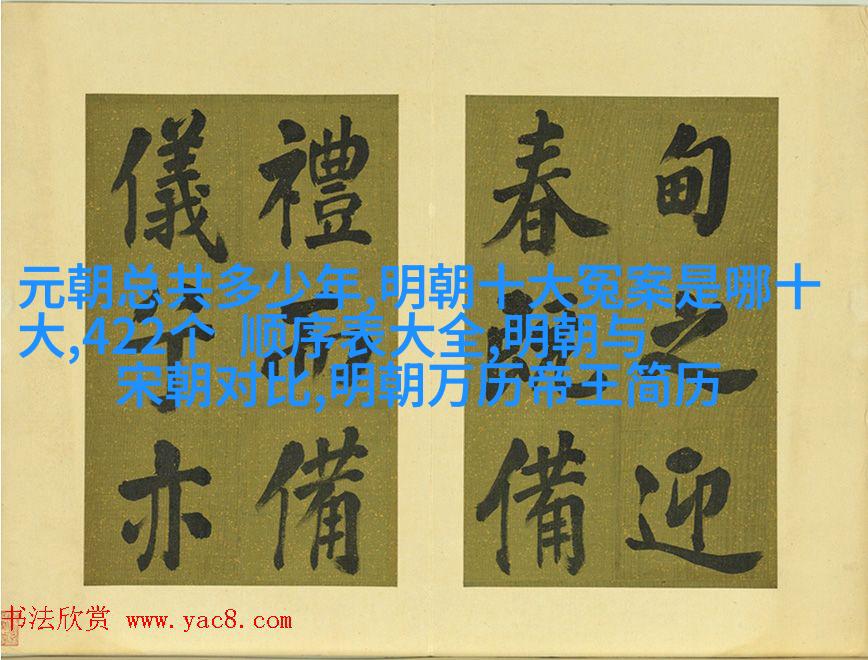 元朝总共多少年,明朝十大冤案是哪十
大,422个 顺序表大全,明朝与
宋朝对比,明朝万历帝王简历
甸之迎
春既備
禮而備
儀亦
书法欣赏 www.yac8.com